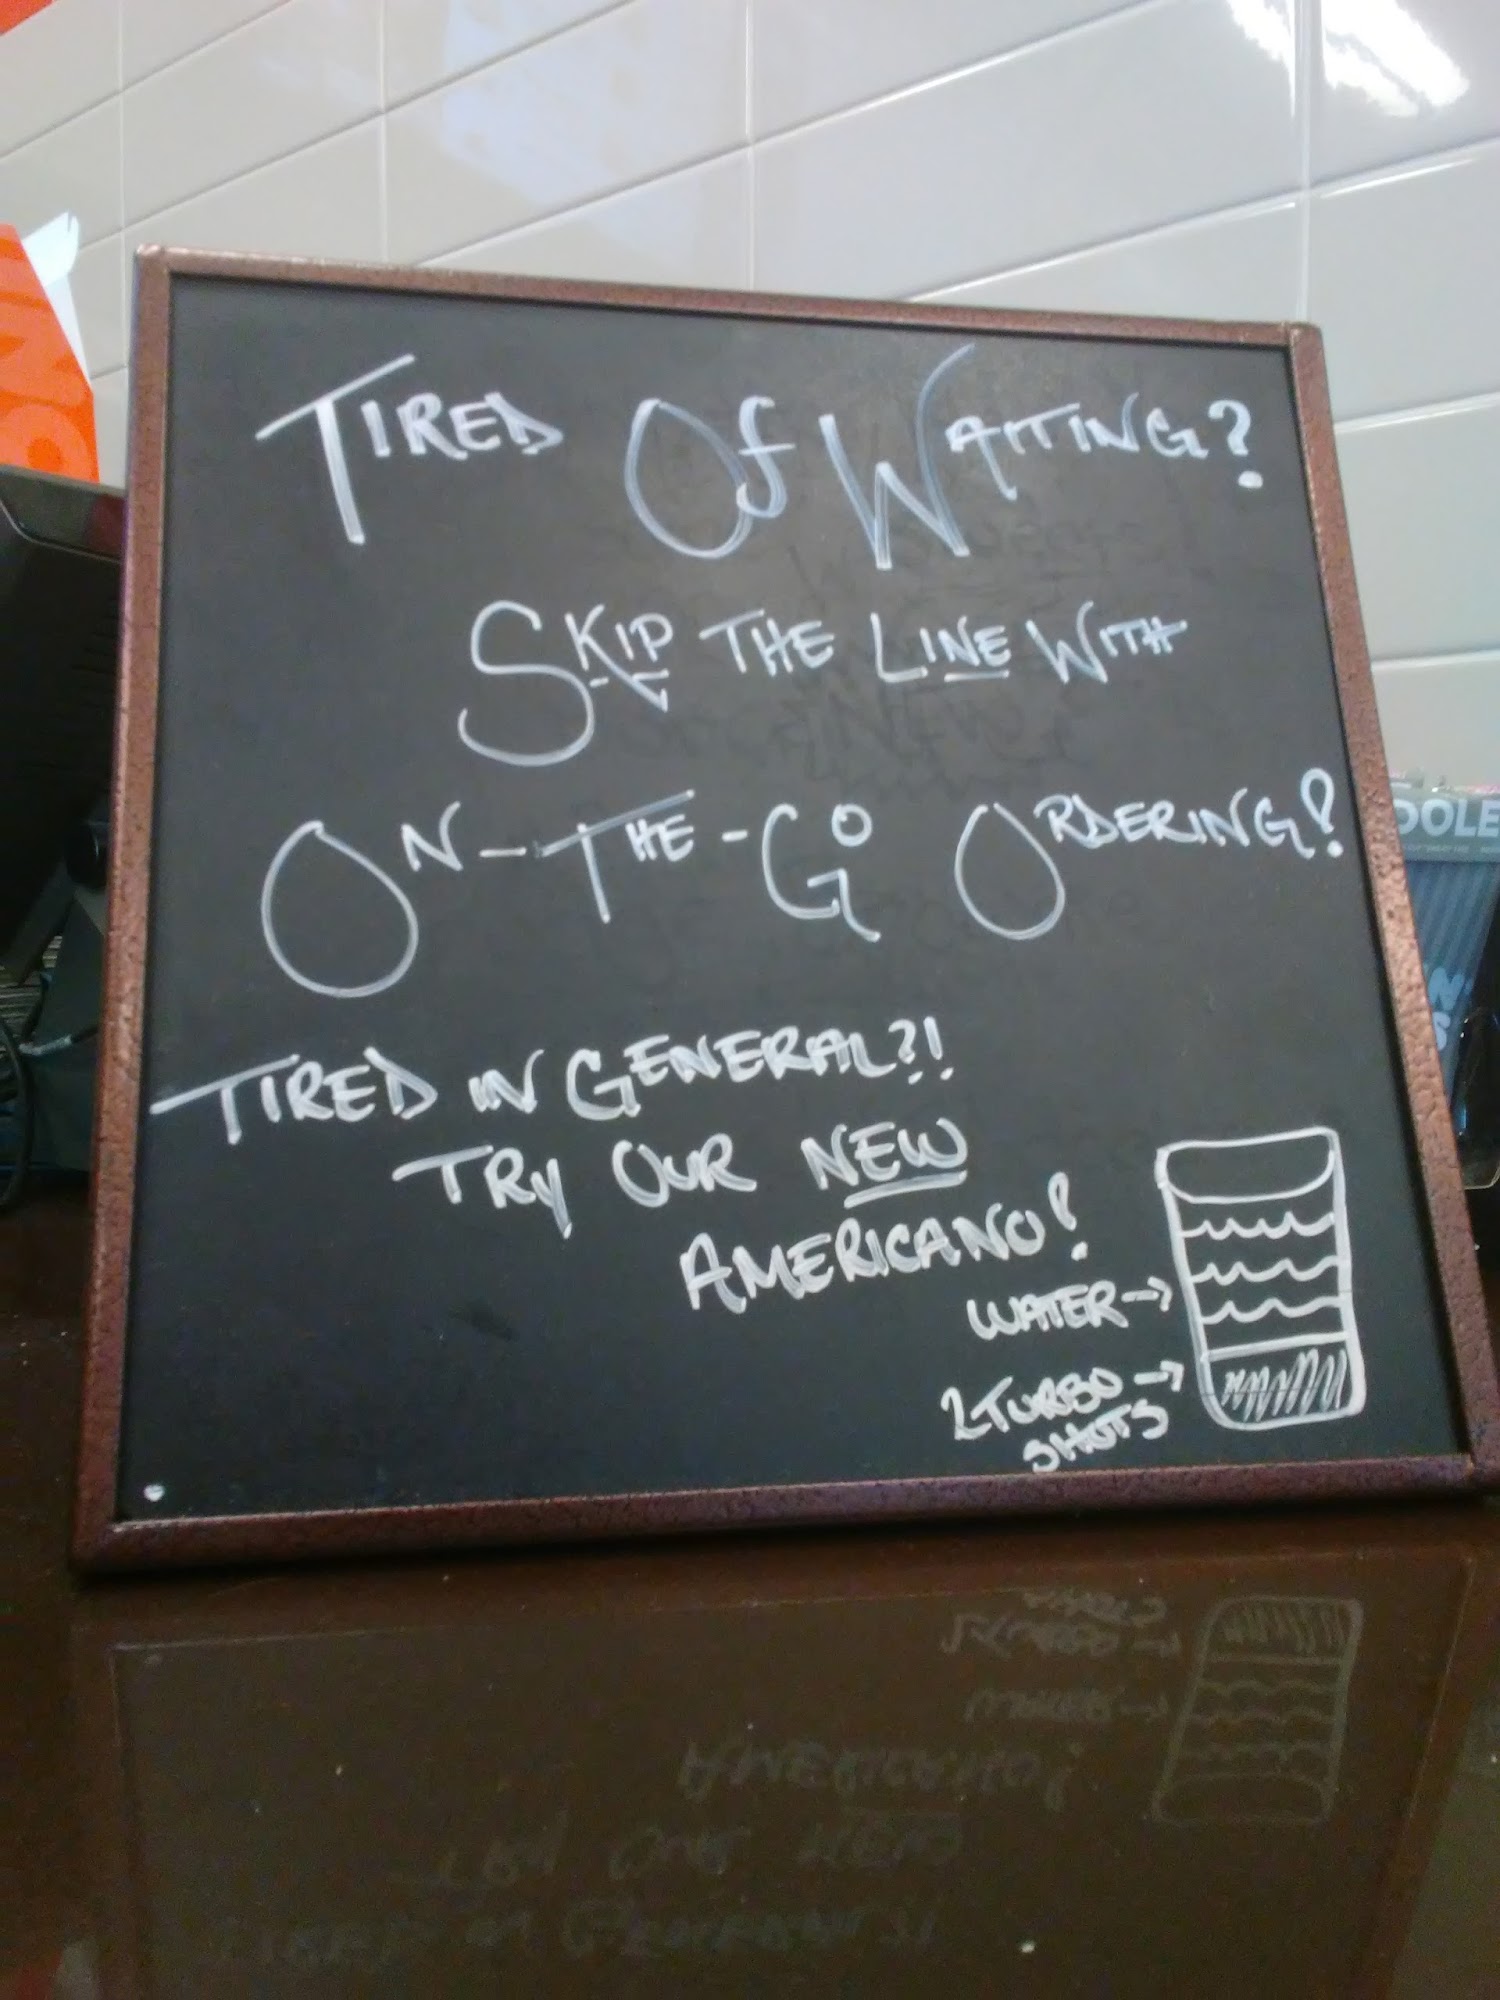 TIRED Of WAITING?
SKIP THE LINE WITH
ON-THE-GO ORDERING!
TIRED IN GENERAL?!
TRY OUR NEW
AMERICANO!
WATER→
2 TURBO→
SHOTS
OOLE